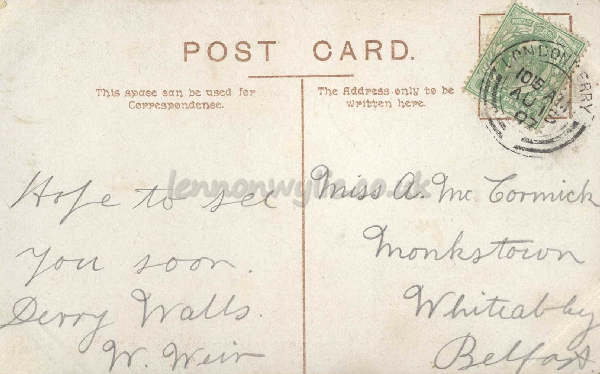 POST CARD.
This space can be used for
Correspondence.
The Address only to be
written here.
POSTAGE
LONDONDERRY
1015 AM
AU
07
lennonwylie.co.uk
Hope to see
you soon.
Derry Walls.
W. Weir
Miss A. Mc Cormick
Monkstown
Whiteabby
Belfast.